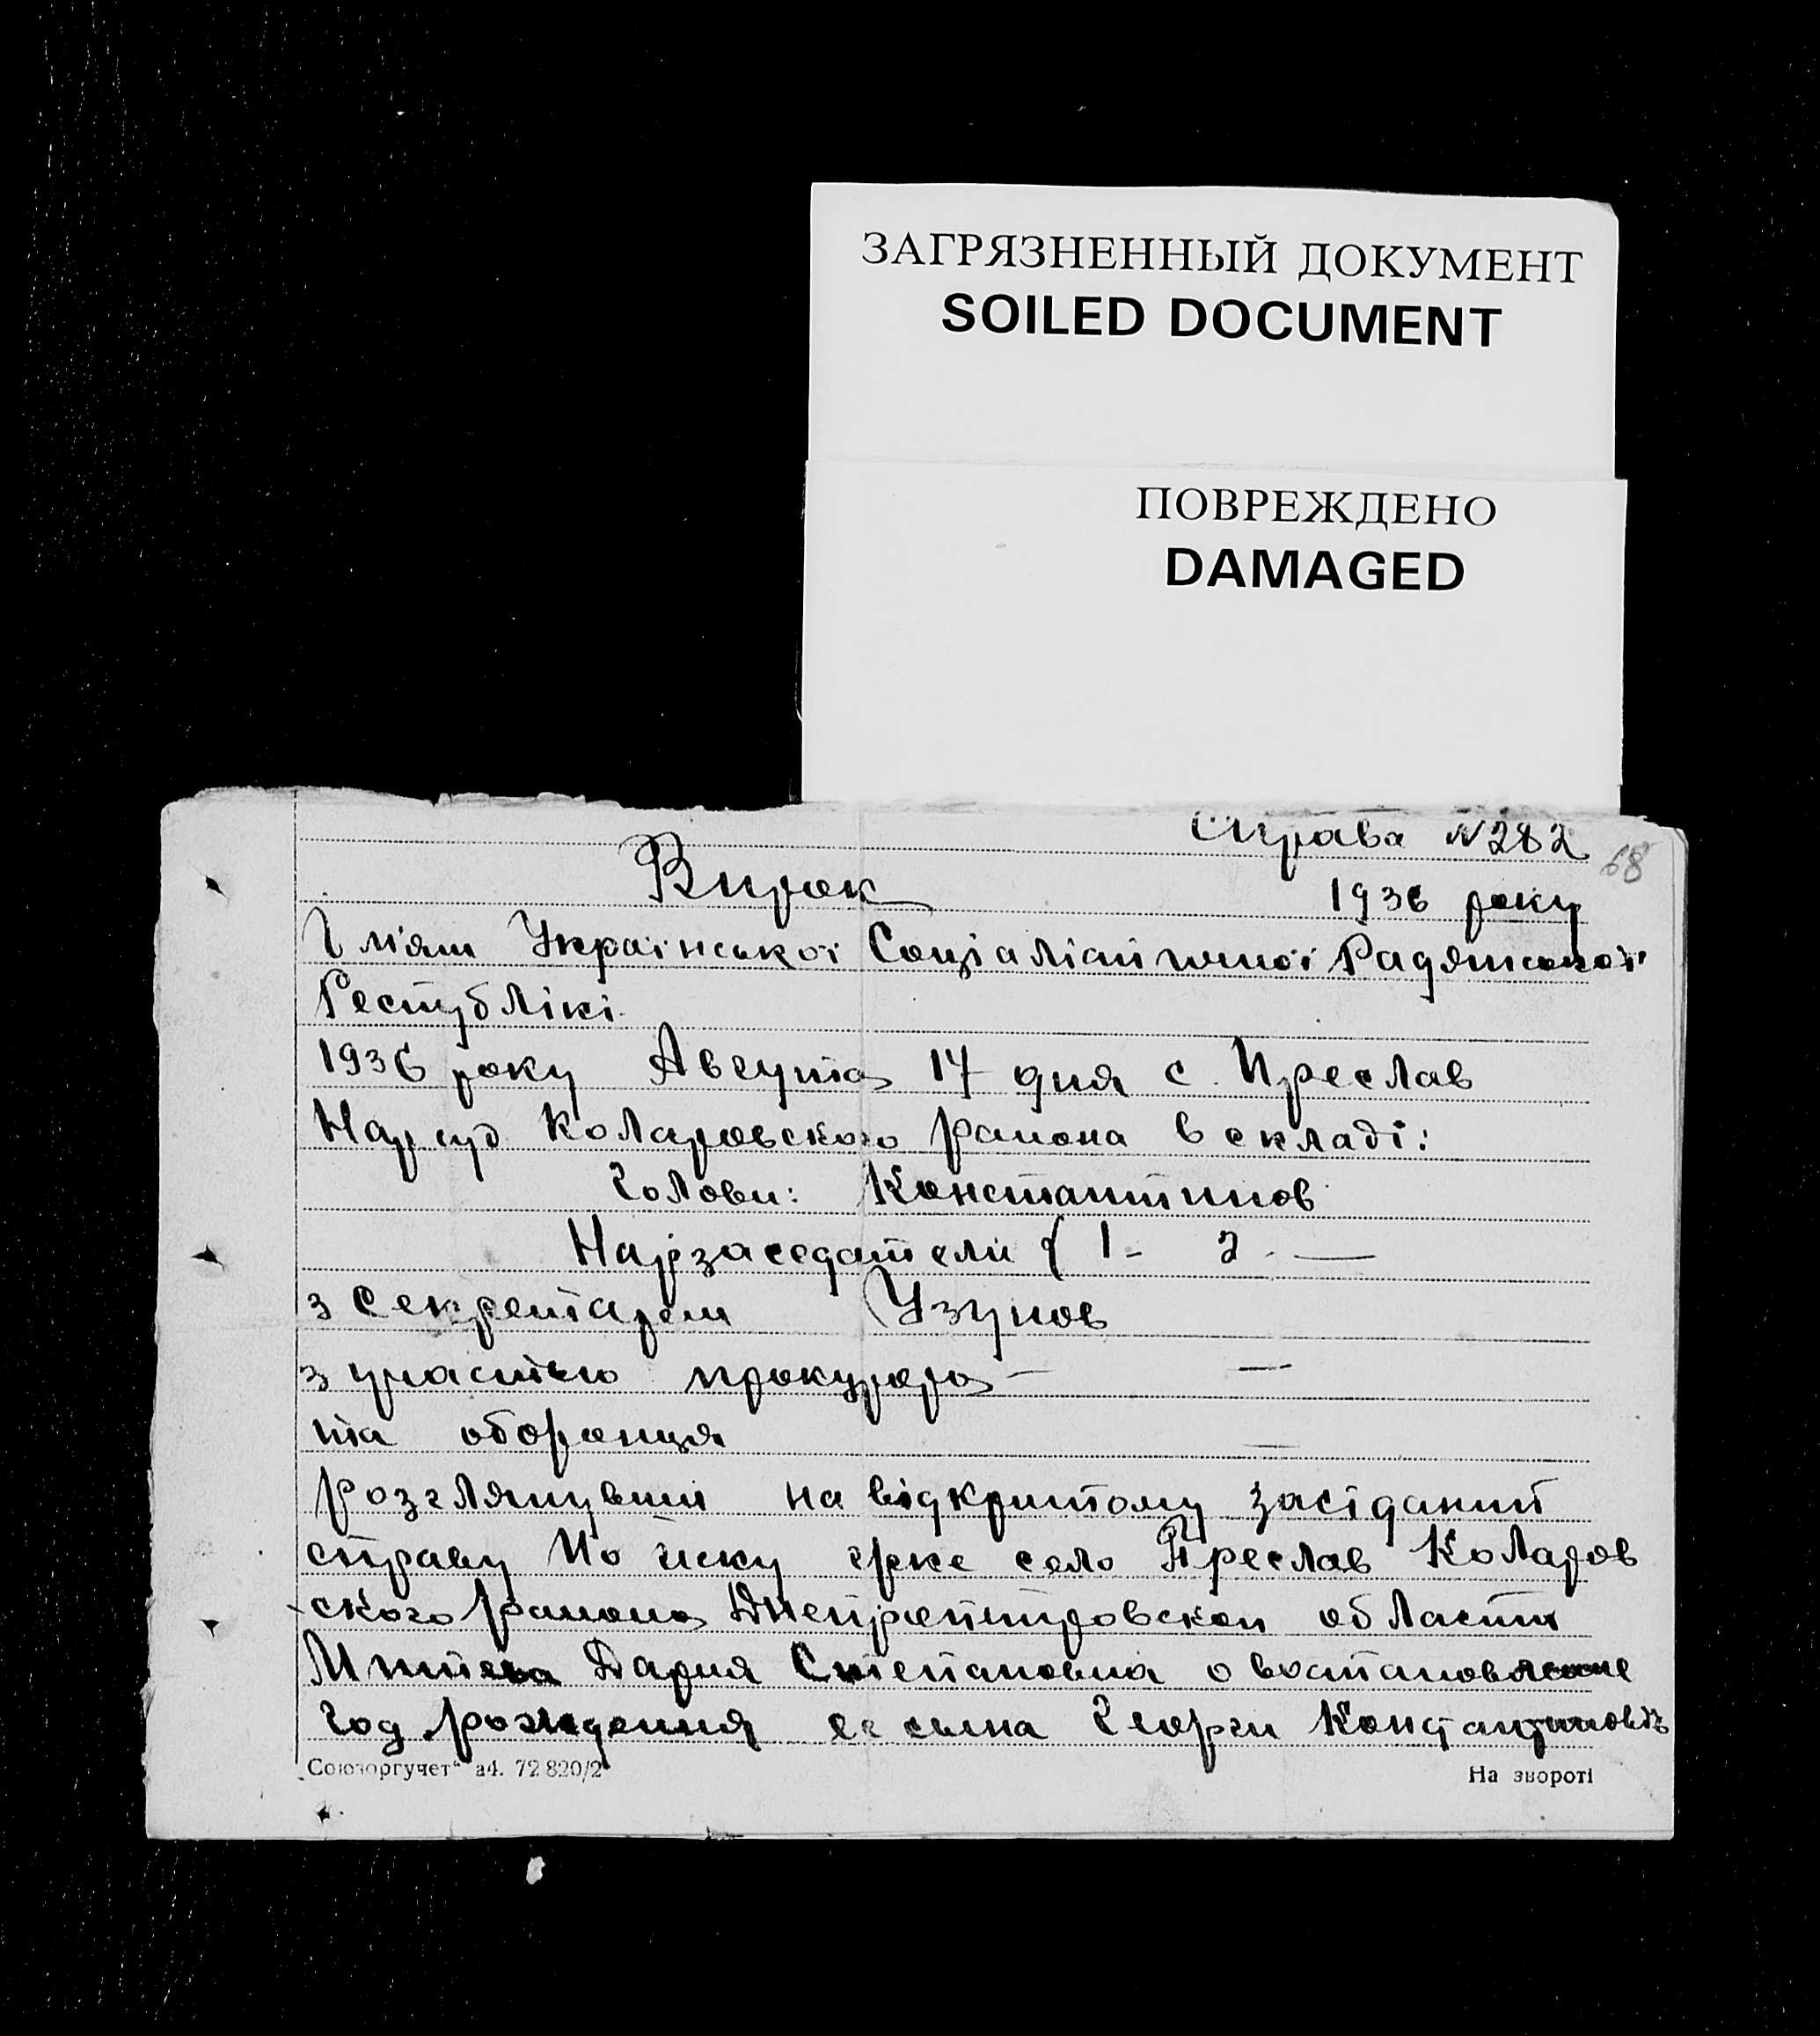 ЗАГРЯЗНЕННЫЙ ДОКУМЕНТ
SOILED DOCUMENT
ПОВРЕЖДЕНО
DAMAGED
Справа №282
68
Вирок 1936 року
Ім'ям Української Соціалістичної Радянської
Республікі
1936 року Августа 17 дня с. Преслав
Нарсуд Коларовского района в складі:
Голови: Константинов
Нарзаседатели { 1 - 2. —
з секретарем Узунов
з участью прокурора — —
та оборонця —
розглянувши на відкритому засіданий
справу По иску грке село Преслав Коларов
ского района Днепропетровской области
Митева Дария Степановна о востановление
год рождения ее сына Георги Константиновіч
Союзоргучет“ а4. 72 820/2
На звороті